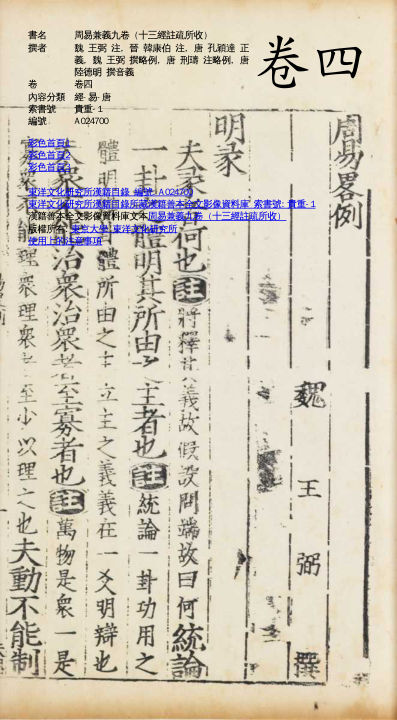 書名 周易兼義九卷（十三經註疏所收）
撰者 魏 王弼 注, 晉 韓康伯 注, 唐 孔穎達 正
義, 魏 王弼 撰略例, 唐 刑璹 注略例, 唐
陸德明 撰音義
卷 卷四
內容分類 經-易-唐
索書號 貴重-1
編號 A024700
卷四
彩色首頁1
彩色首頁2
彩色首頁3
東洋文化研究所漢籍目錄 編號: A024700
東洋文化研究所漢籍目錄所藏漢籍善本全文影像資料庫 索書號: 貴重-1
漢籍善本全文影像資料庫文本周易兼義九卷（十三經註疏所收）
版權所有: 東京大學 東洋文化研究所
使用上的注意事項
周易畧例
魏 王 弼 撰
明彖
夫彖者何也註將釋其義故假設問端故曰何統論
一卦之體明其所由之主者也註統論一卦功用之
體明辯卦體所由之主立主之義義在一爻明辯也
夫衆不能治衆治衆者至寡者也註萬物是衆一是
寡衆不能理衆理衆者至少以理之也夫動不能制